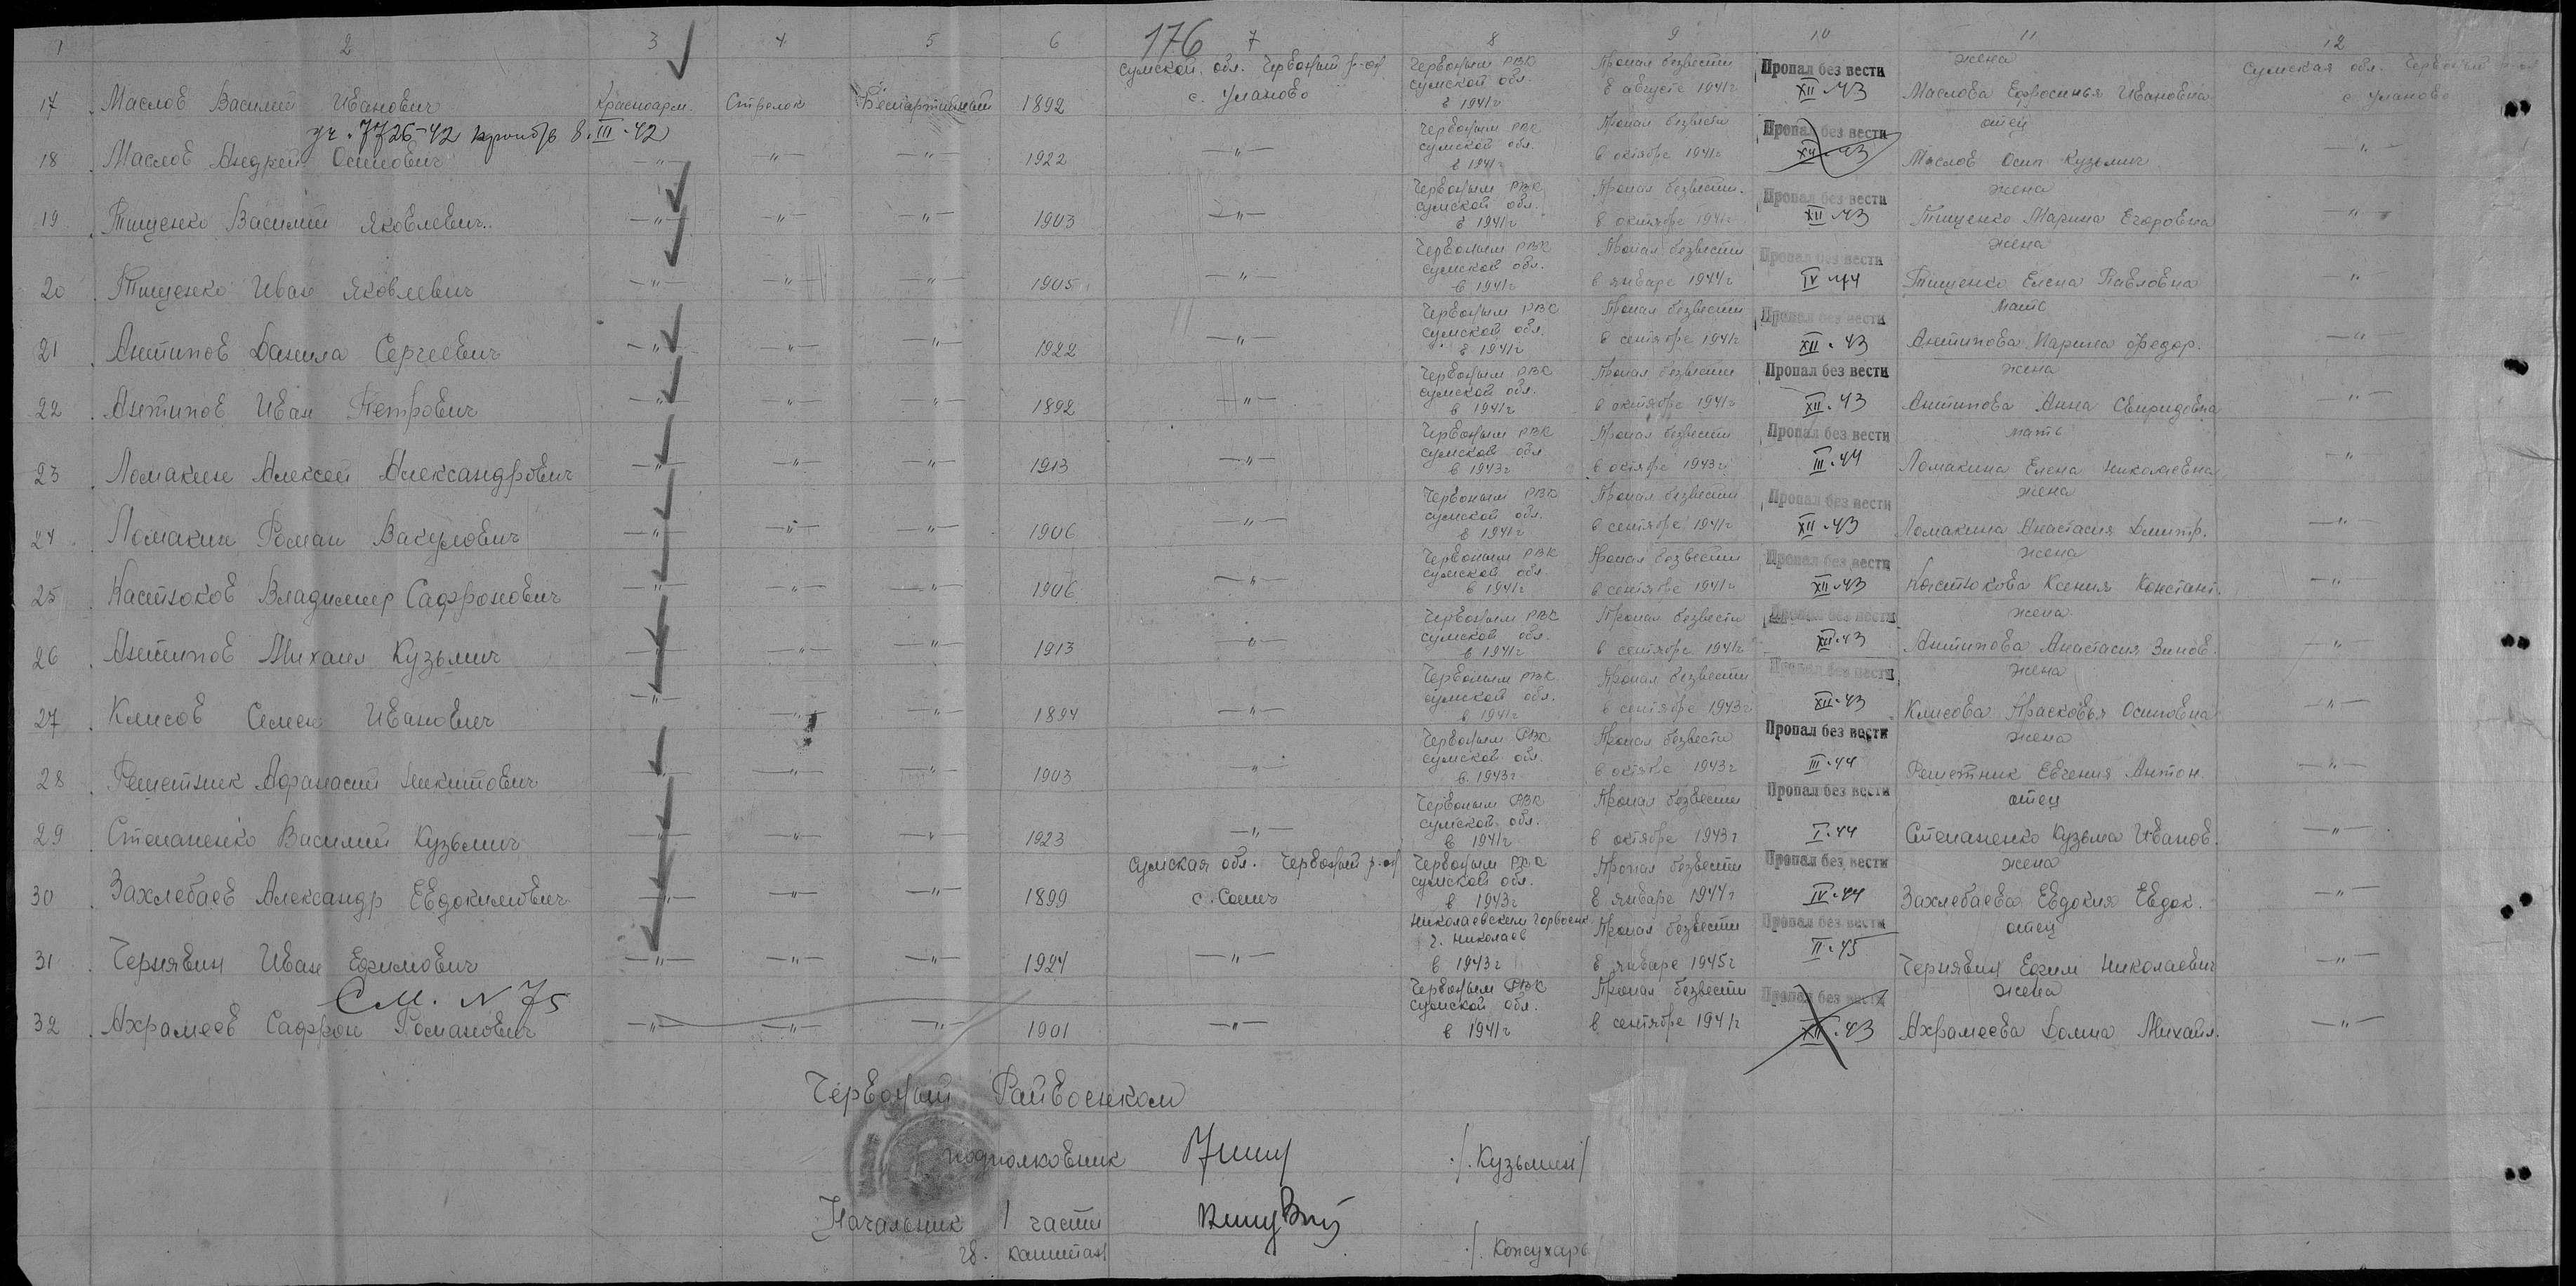 176
1 2 3 4 5 6 7 8 9 10 11 12
17 Маслов Василий Иванович Красноарм. Стрелок Беспартийный 1892 Сумской обл. Червоный р-он с. Уланово Червоным РВК сумской обл. в 1941г Пропал безвести в августе 1941г Пропал без вести XII-43 жена Маслова Ефросинья Ивановна Сумская обл. Червоный р-он с. Уланово
уч. 7726-42 8.III-42
18 Маслов Андрей Осипович -"- -"- -"- 1922 -"- Червоным РВК сумской обл. в 1941г Пропал безвести в октябре 1941г Пропал без вести XII-43 отец Маслов Осип Кузьмич -"-
19 Тищенко Василий Яковлевич -"- -"- -"- 1903 -"- Червоным РВК сумской обл. в 1941г Пропал безвести в октябре 1941г Пропал без вести XII-43 жена Тищенко Марина Егоровна -"-
20 Тищенко Иван Яковлевич -"- -"- -"- 1905 -"- Червоным РВК сумской обл. в 1941г Пропал безвести в январе 1944г Пропал без вести IV-44 жена Тищенко Елена Павловна -"-
21 Антипов Данила Сергеевич -"- -"- -"- 1922 -"- Червоным РВК сумской обл. в 1941г Пропал безвести в сентябре 1941г Пропал без вести XII-43 мать Антипова Марина Федор. -"-
22 Антипов Иван Петрович -"- -"- -"- 1892 -"- Червоным РВК сумской обл. в 1941г Пропал безвести в октябре 1941г Пропал без вести XII-43 жена Антипова Анна Свиридовна -"-
23 Ломакин Алексей Александрович -"- -"- -"- 1913 -"- Червоным РВК сумской обл. в 1943г Пропал безвести в октябре 1943г Пропал без вести III-44 мать Ломакина Елена Николаевна -"-
24 Ломакин Роман Вакулович -"- -"- -"- 1906 -"- Червоным РВК сумской обл. в 1941г Пропал безвести в сентябре 1941г Пропал без вести XII-43 жена Ломакина Анастасия Дмитр. -"-
25 Костюков Владимир Сафронович -"- -"- -"- 1906 -"- Червоным РВК сумской обл. в 1941г Пропал безвести в сентябре 1941г Пропал без вести XII-43 жена Костюкова Ксения Констант. -"-
26 Антипов Михаил Кузьмич -"- -"- -"- 1913 -"- Червоным РВК сумской обл. в 1941г Пропал безвести в сентябре 1941г Пропал без вести XII-43 жена Антипова Анастасия Зинов. -"-
27 Климов Семен Иванович -"- -"- -"- 1894 -"- Червоным РВК сумской обл. в 1941г Пропал безвести в сентябре 1943г Пропал без вести XII-43 жена Климова Прасковья Осиповна -"-
28 Решетник Афанасий Никитович -"- -"- 1903 -"- Червоным РВК сумской обл. в 1943г Пропал безвести в октябре 1943г Пропал без вести III-44 жена Решетник Евгения Антон. -"-
29 Степаненко Василий Кузьмич -"- -"- -"- 1923 -"- Червоным РВК сумской обл. в 1941г Пропал безвести в октябре 1943г Пропал без вести I-44 отец Степаненко Кузьма Иванов. -"-
30 Захлебаев Александр Евдокимович -"- -"- -"- 1899 Сумская обл. Червоный р-он с. Сопич Червоным РВК сумской обл. в 1943г Пропал безвести в январе 1944г Пропал без вести IV-44 жена Захлебаева Евдокия Евдок. -"-
31 Чернявин Иван Ефимович -"- -"- -"- 1924 -"- Николаевским Горвоенк. г. Николаев в 1943г Пропал безвести в январе 1945г Пропал без вести II-45 отец Чернявин Ефим Николаевич -"-
См. N 75
32 Ахрамеев Сафрон Романович -"- -"- -"- 1901 -"- Червоным РВК сумской обл. в 1941г Пропал безвести в сентябре 1941г Пропал без вести XII-43 жена Ахрамеева Домна Михайл. -"-
Червоный Райвоенком
подполковник /Кузьмин/
Начальник 1 части
гв. капитан /Кожухарь